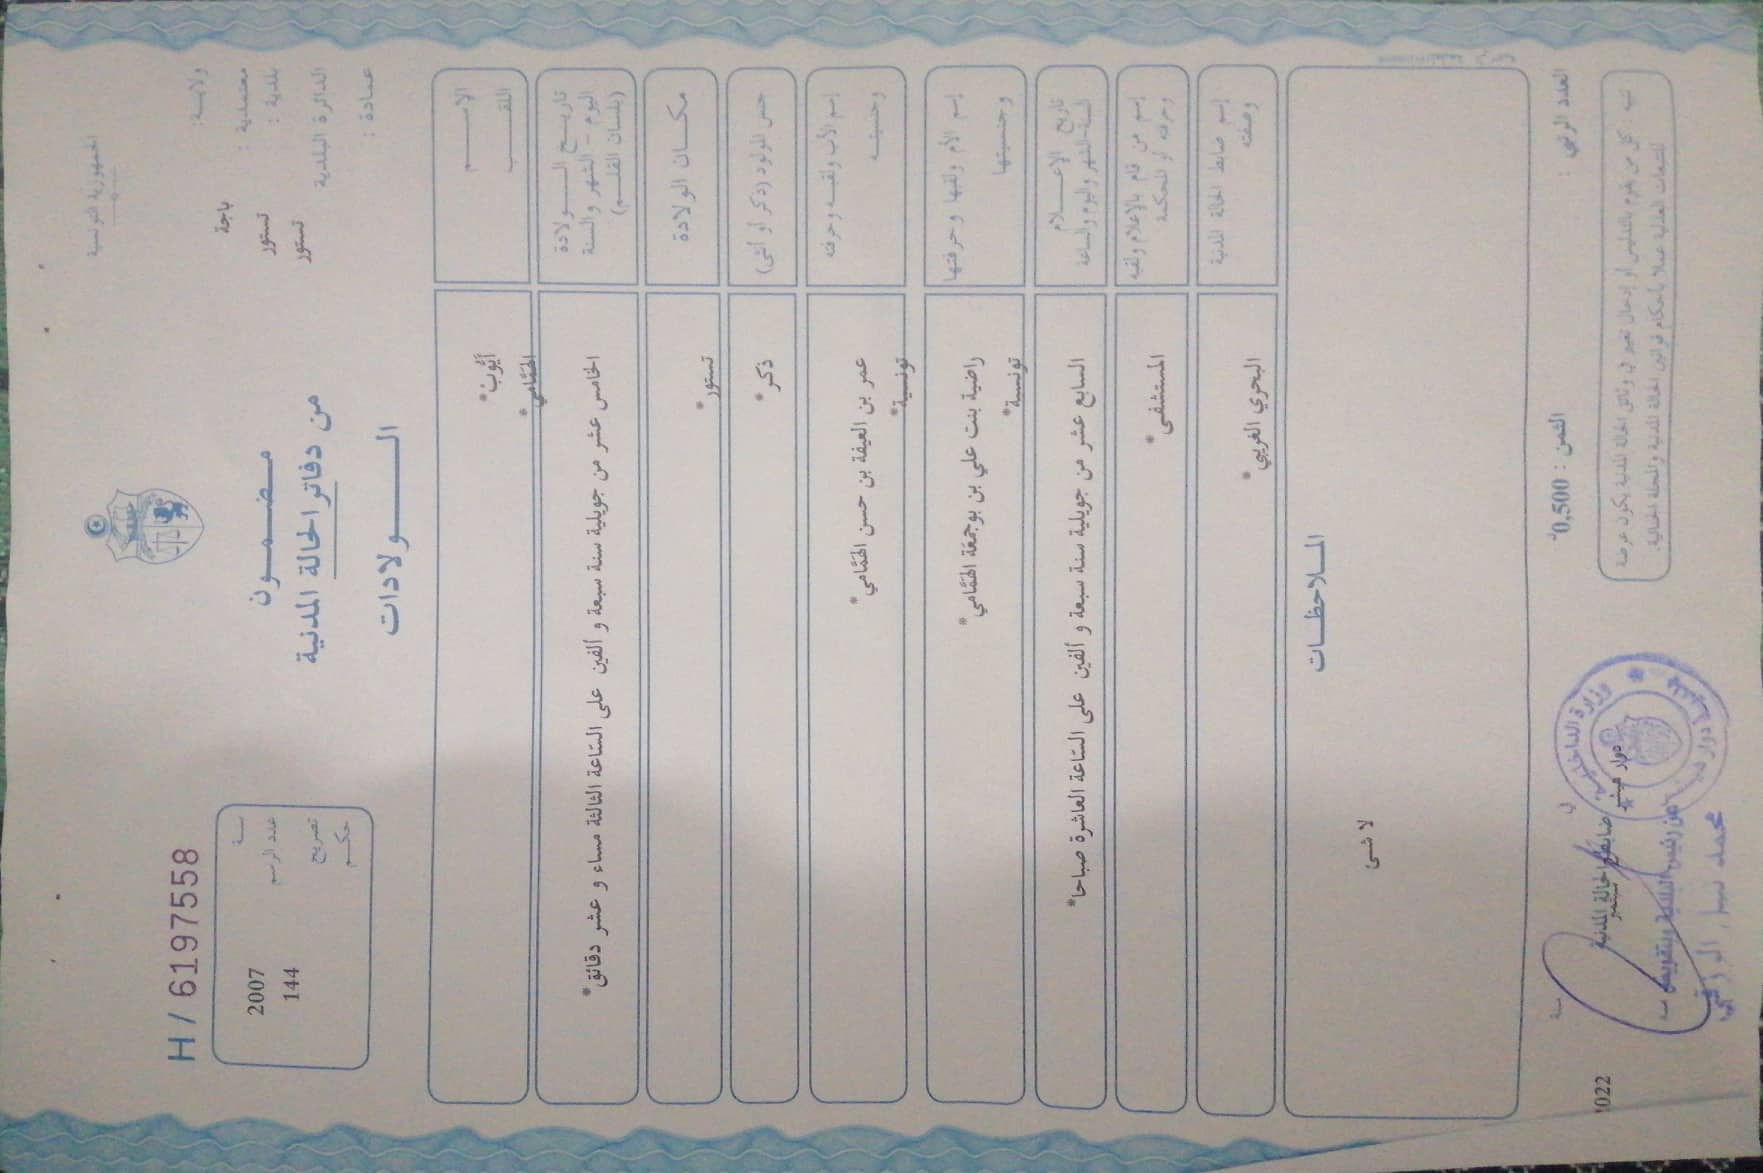 الجمهورية التونسية
ولايـة : باجة
معتمدية : تستور
بلدية : تستور
الدائرة البلدية
عمادة :
مـضـمـون
من دفاتر الحالة المدنية
الـــولادات
H / 6197558
سنة 2007
عدد الرسم 144
تصريح
حكـم
الاســـم أيّوب*
اللقـــب الهمّامي*
تاريـخ الــولادة
اليوم – الشهر والسنة
(بلسان القلـم)
الخامس عشر من جويلية سنة سبعة و ألفين على السّاعة الثالثة مساء و عشر دقائق*
مكـان الولادة تستور*
جنس المولود (ذكر أو أنثى) ذكر*
إسم الأب ولقبـه وحرفته عمر بن العيفة بن حسن الهمّامي*
وجنسيتـه تونسية*
إسم الأم ولقبها وحرفتها راضية بنت علي بن بوجمعة الهمّامي*
وجنسيتها تونسة*
تاريخ الإعــلام
السنة-الشهر واليوم والساعة
السابع عشر من جويلية سنة سبعة و ألفين على السّاعة العاشرة صباحا*
إسم من قام بالإعلام ولقبه
وحرفته أو المحكمة
المستشفى*
إسم ضابط الحالة المدنية
وصفته
البحري الغربي*
المـلاحظـات
لا شئ
العدد الرتبي :
الثمن : 0,500
تنبيه : كل من يقوم بالتدليس أو إدخال تغيير في وثائق الحالة المدنية يكون عرضة
للتتبعات العدلية عملا بأحكام قوانين الحالة المدنية والمجلة الجنائية.
في
سبتمبر
سنة
ضابط الحالة المدنية
وزارة الداخلية
عن رئيس البلدية وبتفويض منه
محمد